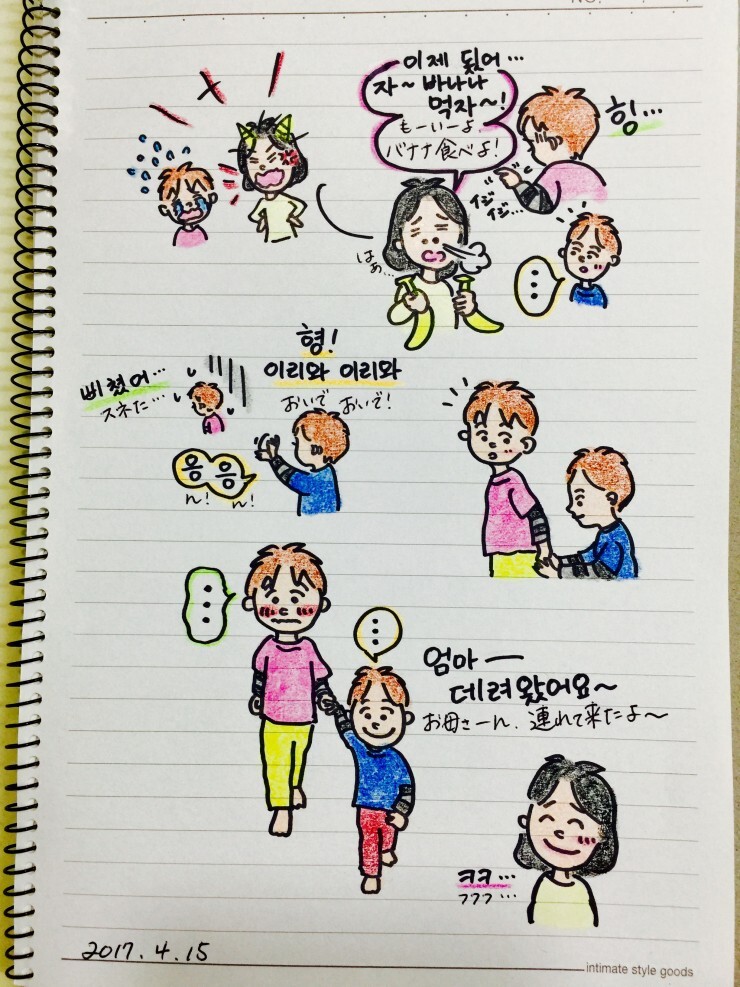 NO.
이제 됬어…
자~ 바나나
먹자~!
もーいーよ
バナナ食べよ!
힝…
イジ
イジ…
はぁ…
형!
이리와 이리와
おいで おいで!
삐졌어…
スネた…
응 응
ん! ん!
엄마ー
데려왔어요~
お母さーん、連れて来たよ〜
ㅋㅋ…
フフフ…
2017.4.15
intimate style goods